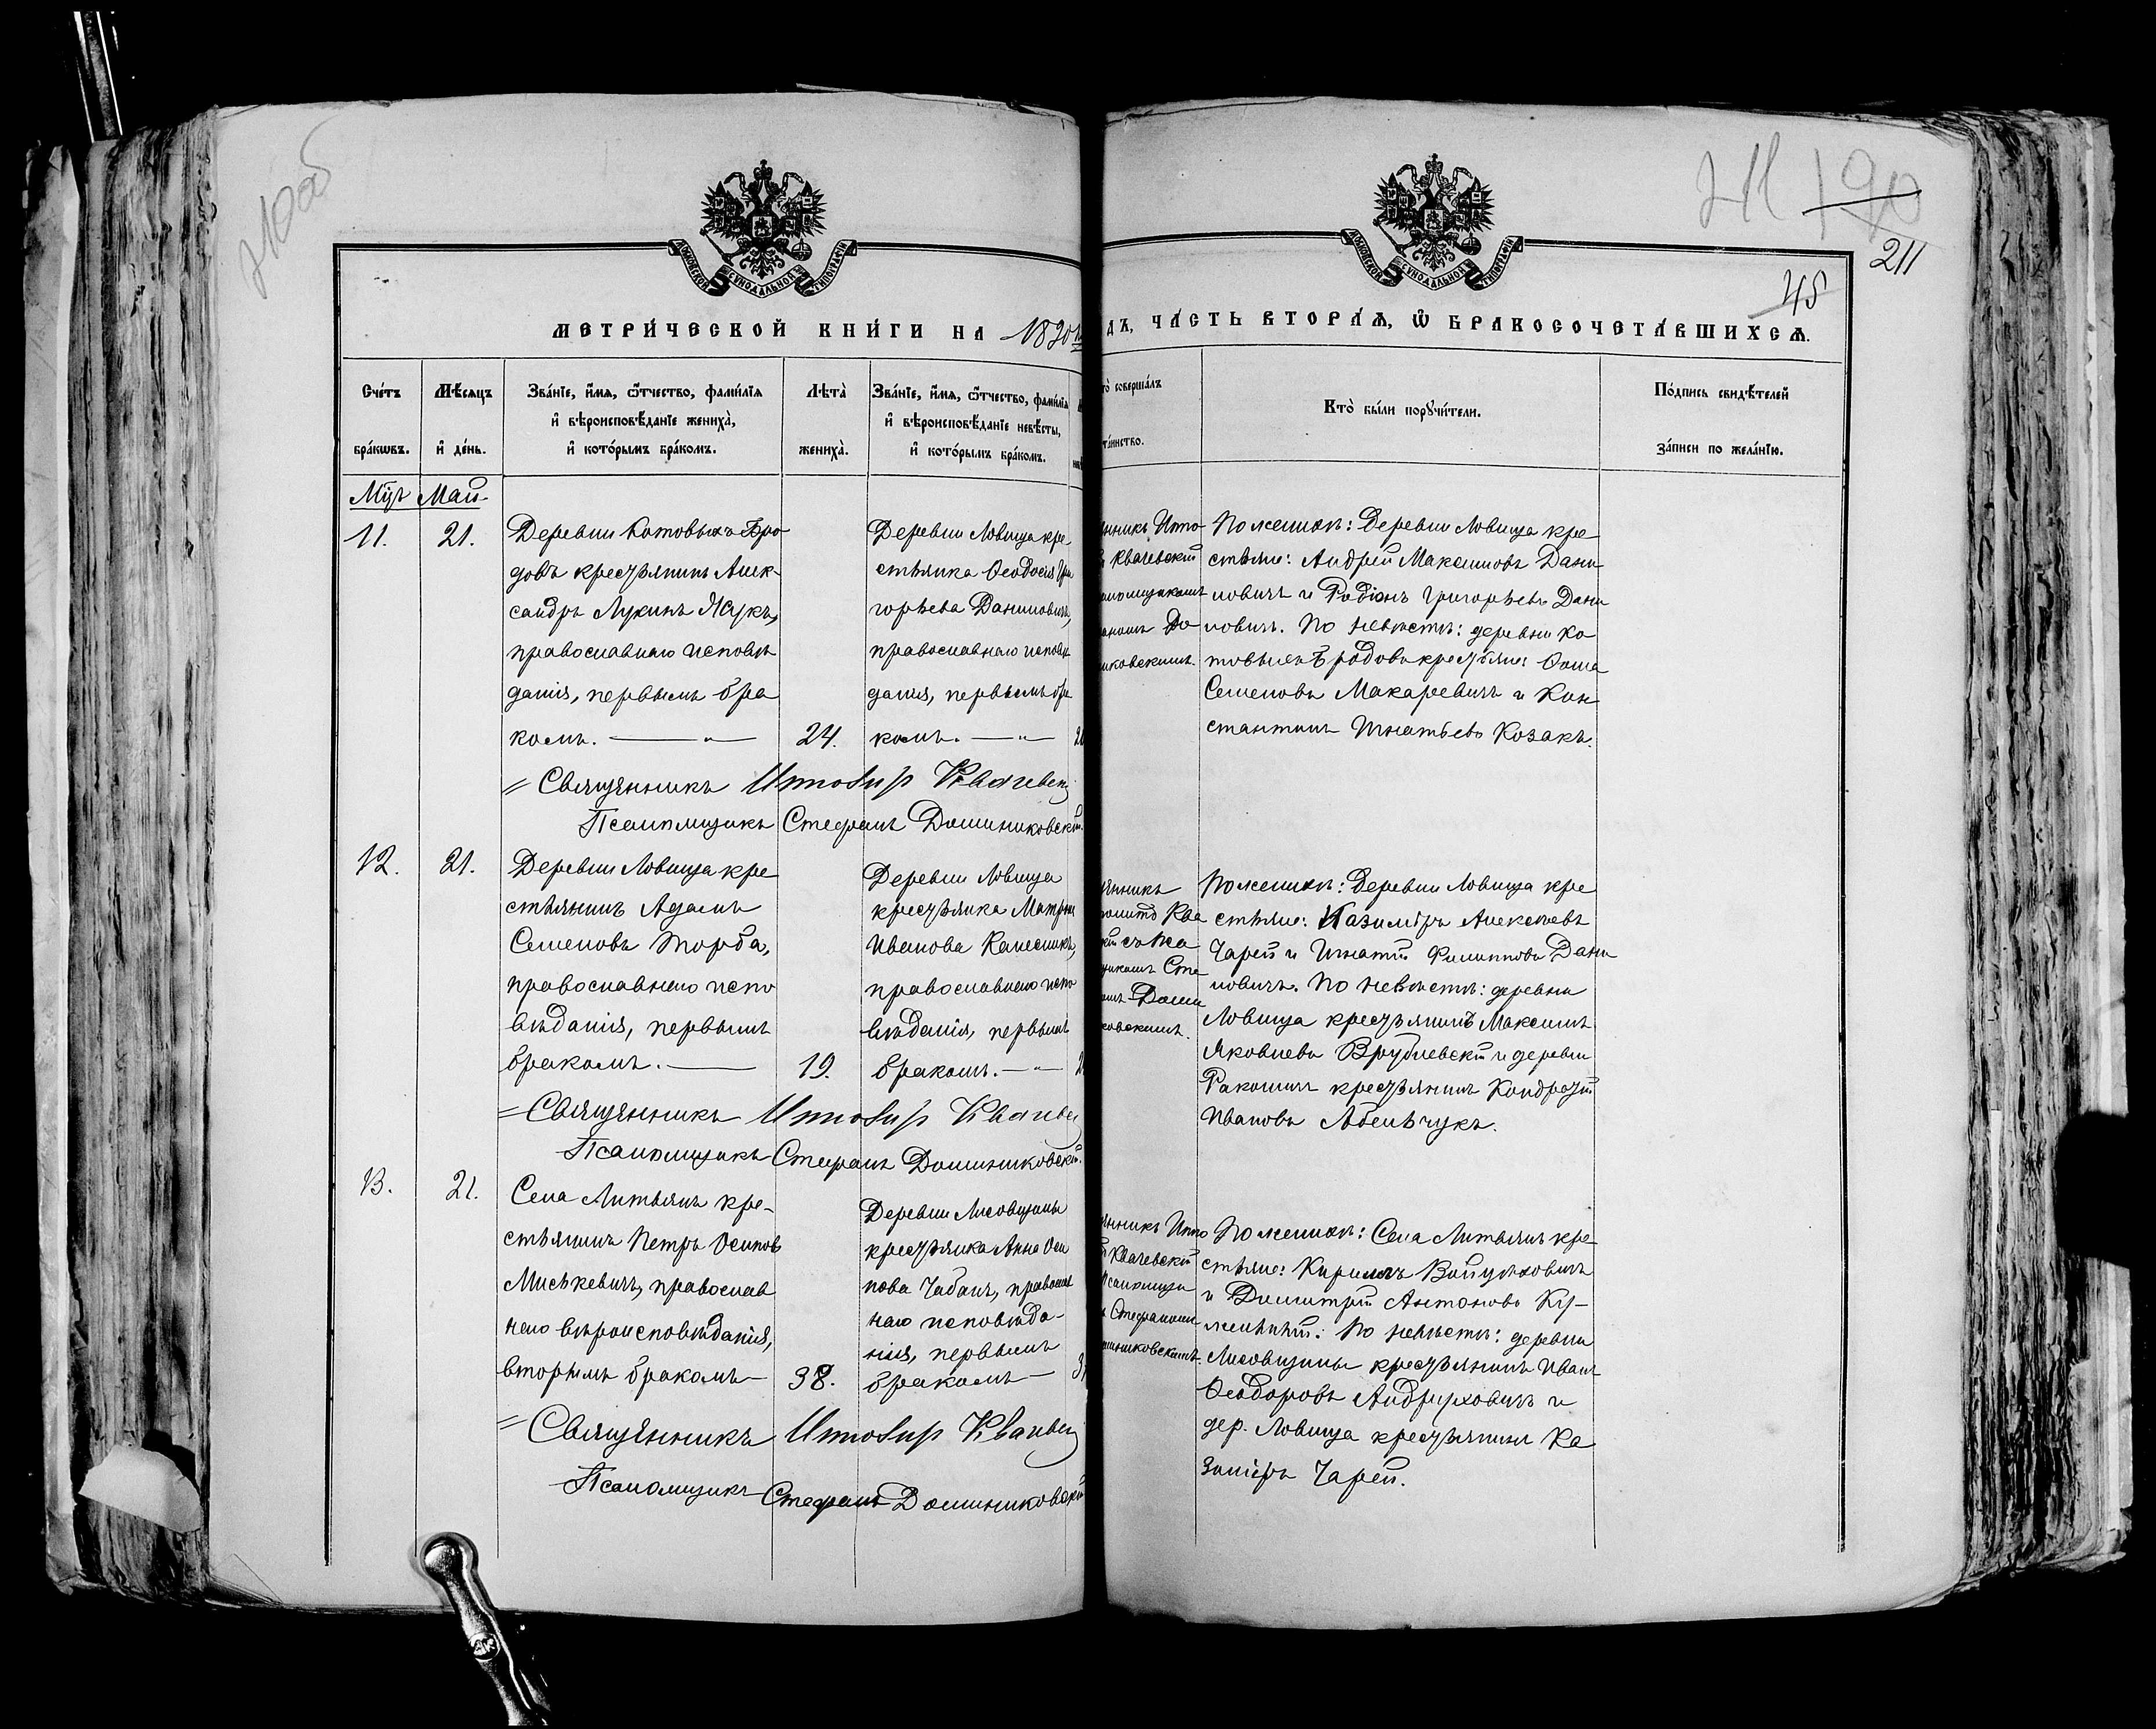 210об
211 190
211
45
МОСКОВСКОЙ СѴНОДАЛЬНОЙ ТИПОГРАФІИ
МОСКОВСКОЙ СѴНОДАЛЬНОЙ ТИПОГРАФІИ
МЕТРИ́ЧЕСКОЙ КНИ́ГИ НА 1890
ДЪ, ЧА́СТЬ ВТОРА́Ѧ, Ѿ БРАКОСОЧЕТА́ВШИХСѦ.
Сче́тъ бра́кѡвъ.
Мѣ́сяцъ и҆ де́нь.
Зва́нїе, и҆́мѧ, ѻ҆́тчество, фами́лїѧ
и҆ вѣроисповѣ́данїе жениха̀,
и҆ кото́рымъ бра́комъ.
Лѣ́та жениха̀.
Зва́нїе, и҆́мѧ, ѻ҆́тчество, фами́лїѧ
и҆ вѣроисповѣ́данїе невѣ́сты,
и҆ кото́рымъ бра́комъ.
то̀ соверша́лъ
та́инство.
Кто̀ бы́ли порꙋчи́тели.
По́дпись свидѣ́телей
за́писи по жела́нїю.
Мцъ Май
11.
21.
Деревни Котовыхъ Бро
довъ крестьянинъ Алек-
сандръ Лукинъ Яцукъ,
православнаго исповѣ
данія, первымъ бра
комъ. — " —
24.
Деревни Ловища кре
стьянка Ѳеодосія Гри
горьева Даниловичъ,
православнаго исповѣ
данія, первымъ бра
комъ. — " —
нникъ Иппо
Квачевскій
аломщикомъ
аномъ До
иковскимъ.
По женихѣ: деревни Ловища кре
стьяне: Андрей Максимовъ Дани
ловичъ и Родіонъ Григорьевъ Дани
ловичъ. По невѣстѣ: деревни Ко
товыхъ Бродовъ крестьяне: Ѳома
Семеновъ Макаревичъ и Кон
стантинъ Игнатьевъ Козакъ.
Священникъ Ипполитъ Квачевск
Псаломщикъ Стефанъ Доминиковскій.
12.
21.
Деревни Ловища кре
стьянинъ Адамъ
Семеновъ Торба,
православнаго испо
вѣданія, первымъ
бракомъ. —
19.
Деревни Ловища
крестьянка Матрона
Иванова Калесникъ,
православнаго испо
вѣданія, первымъ
бракомъ. — " —
нникъ
политъ Ква
кій съ Пса
щикомъ Сте
омъ Доми
ковскимъ.
По женихѣ: деревни Ловища кре
стьяне: Казиміръ Алексѣевъ
Чарей и Игнатій Филипповъ Дани
ловичъ. По невѣстѣ: деревни
Ловища крестьянинъ Максимъ
Яковлевъ Врублевскій и деревни
Ракошичъ крестьянинъ Кондратій
Ивановъ Абельчукъ.
Священникъ Ипполитъ Квачев
Псаломщикъ Стефанъ Доминиковскій.
13.
21.
Села Литвянъ кре-
стьянинъ Петръ Осиповъ
Миськевичъ, православ
наго вѣроисповѣданія,
вторымъ бракомъ —
38.
Деревни Лисовщины
крестьянка Анна Оси
пова Чабанъ, православ
наго исповѣда-
нія, первымъ
бракомъ —
нникъ Иппо
Квачевскій
Псаломщи
Стефаномъ
миниковскимъ.
По женихѣ: Села Литвянъ кре
стьяне: Кириллъ Войцѣховичъ
и Димитрій Антоновъ Ку-
. По невѣстѣ: деревни
Лисовщины крестьянинъ Иванъ
Ѳеодоровъ Андруховичъ и
дер. Ловища крестьянинъ Ка
зиміръ Чарей.
Священникъ Ипполитъ Квачев
Псаломщикъ Стефанъ Доминиковскій